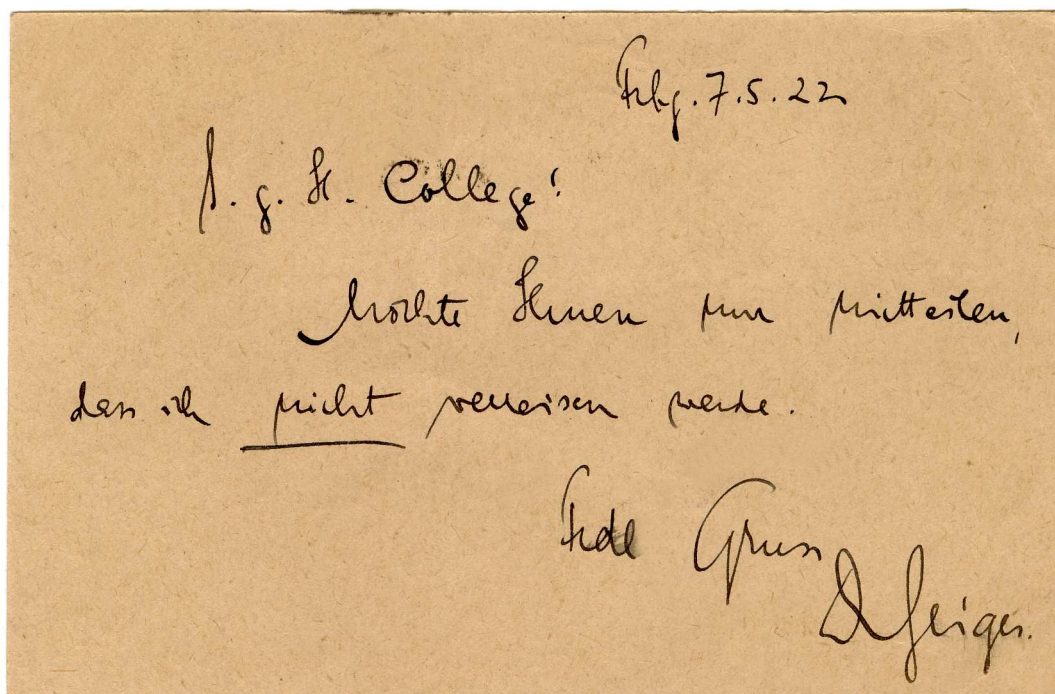 Frbg. 7.5.22
S. g. H. College!
Möchte Ihnen nur mitteilen,
dass ich nicht verreisen werde.
Frdl Gruss
Dr Geiger.